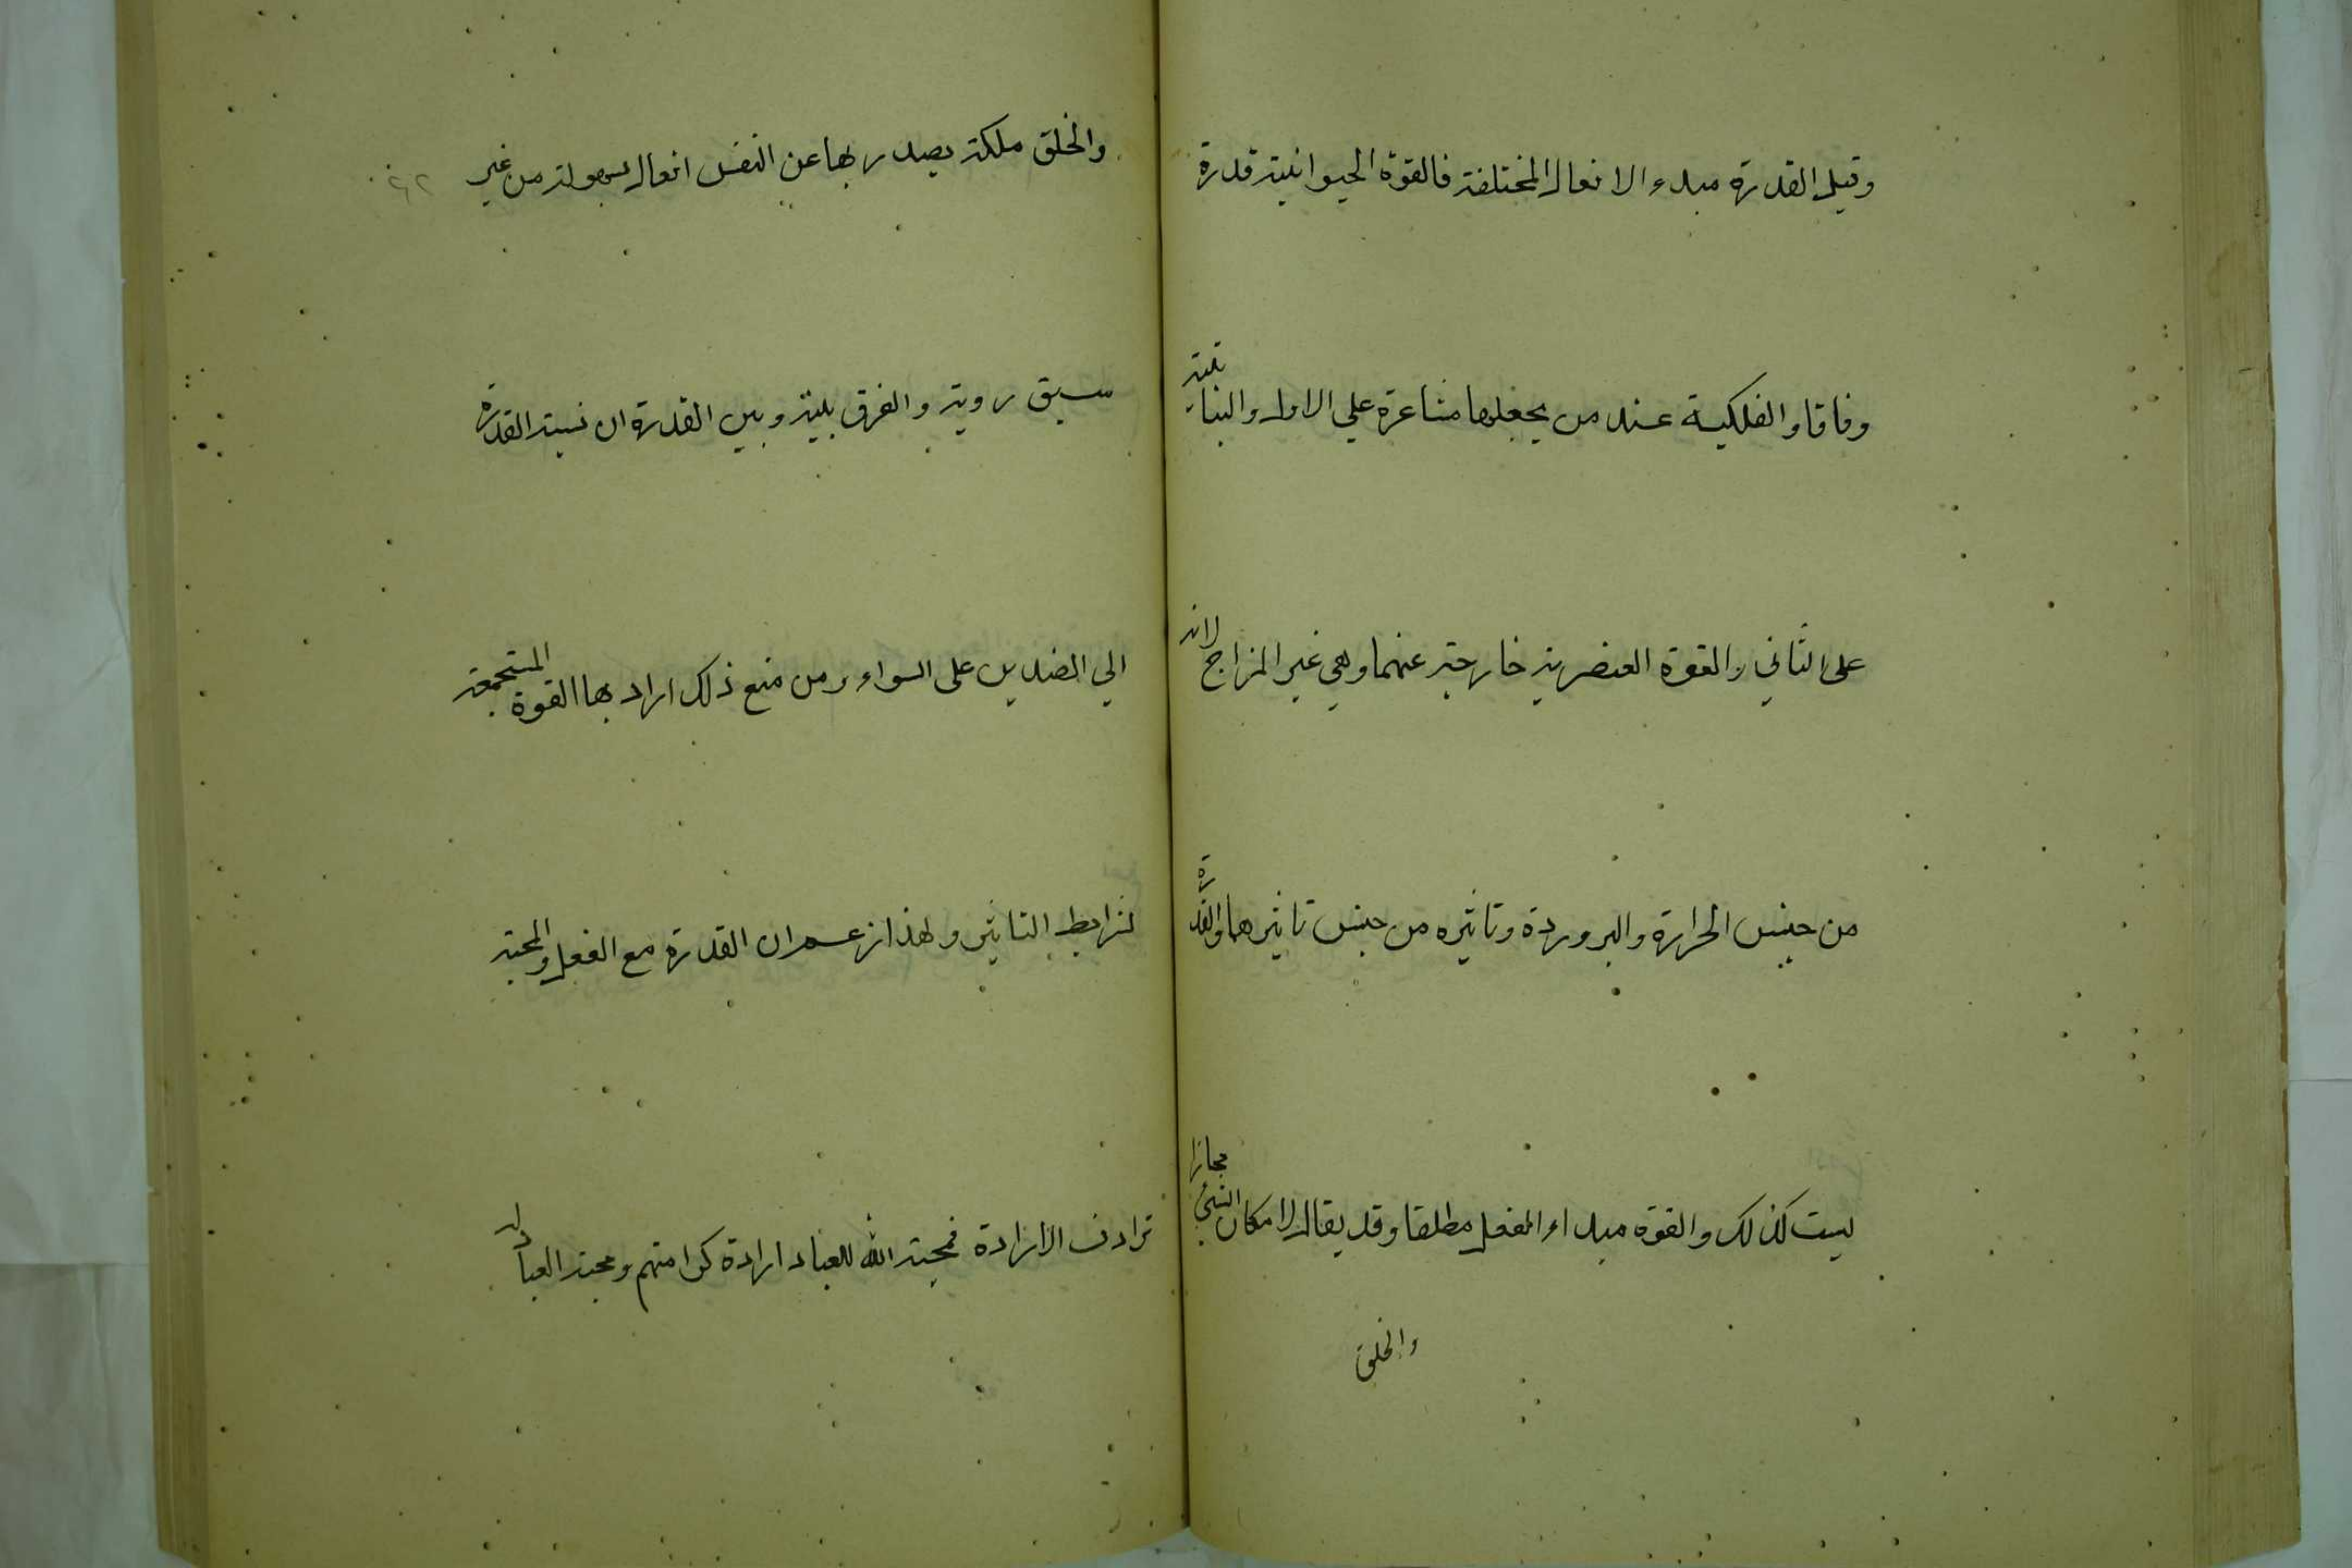 وقيل القدرة مبدء الافعال المختلفة فالقوة الحيوانية قدرة
وفاقا والفلكية عند من يجعلها شاعرة علي الاول والنباتية
على الثاني والقوة العنصرية خارجة عنهما وهي غير المزاج لانه
من جنس الحرارة والبرودة وتاثيره من جنس تاثيرهما والقدرة
ليست كذلك والقوة مبداء الفعل مطلقا وقد يقال لامكان الشيئ مجازا
والخلق
والخلق ملكة يصدر بها عن النفس افعال بسهولة من غير
سبق روية والفرق بينه وبين القدرة ان نسبة القدرة
الي الضدين على السواء ومن منع ذلك اراد بها القوة المستجمعة
لشرايط التاثير ولهذا زعم ان القدرة مع الفعل والمحبة
ترادف الارادة فمحبة الله للعباد ارادة كرامتهم ومحبة العباد له